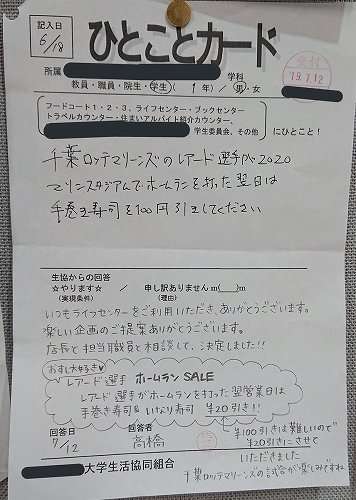 記入日
6/18
ひとことカード
所属
学科
教員・職員・院生・学生( 1年)/男・女
受付
19.7.12
フードコート1・2・3、ライフセンター・ブックセンター
トラベルカウンター・住まいアルバイト紹介カウンター、
学生委員会、その他
にひとこと!
千葉ロッテマリーンズのレアード選手がZOZO
マリンスタジアムでホームランを打った翌日は
手巻き寿司を100円引きしてください
生協からの回答
☆やります☆ / 申し訳ありませんm(__)m
(実現条件) (理由)
いつもライフセンターをご利用いただき、ありがとうございます。
楽しい企画のご提案ありがとうございます。
店長と担当職員と相談して、決定しました!!
おすし大好き♡
レアード選手 ホームランSALE
レアード選手がホームランを打った翌営業日は
手巻き寿司&いなり寿司 ¥20引き!!
回答日
7/12
回答者
高橋
¥100引きは難しいので
¥20引きにさせて
いただきました
大学生活協同組合
千葉ロッテマリーンズの試合が楽しみですね